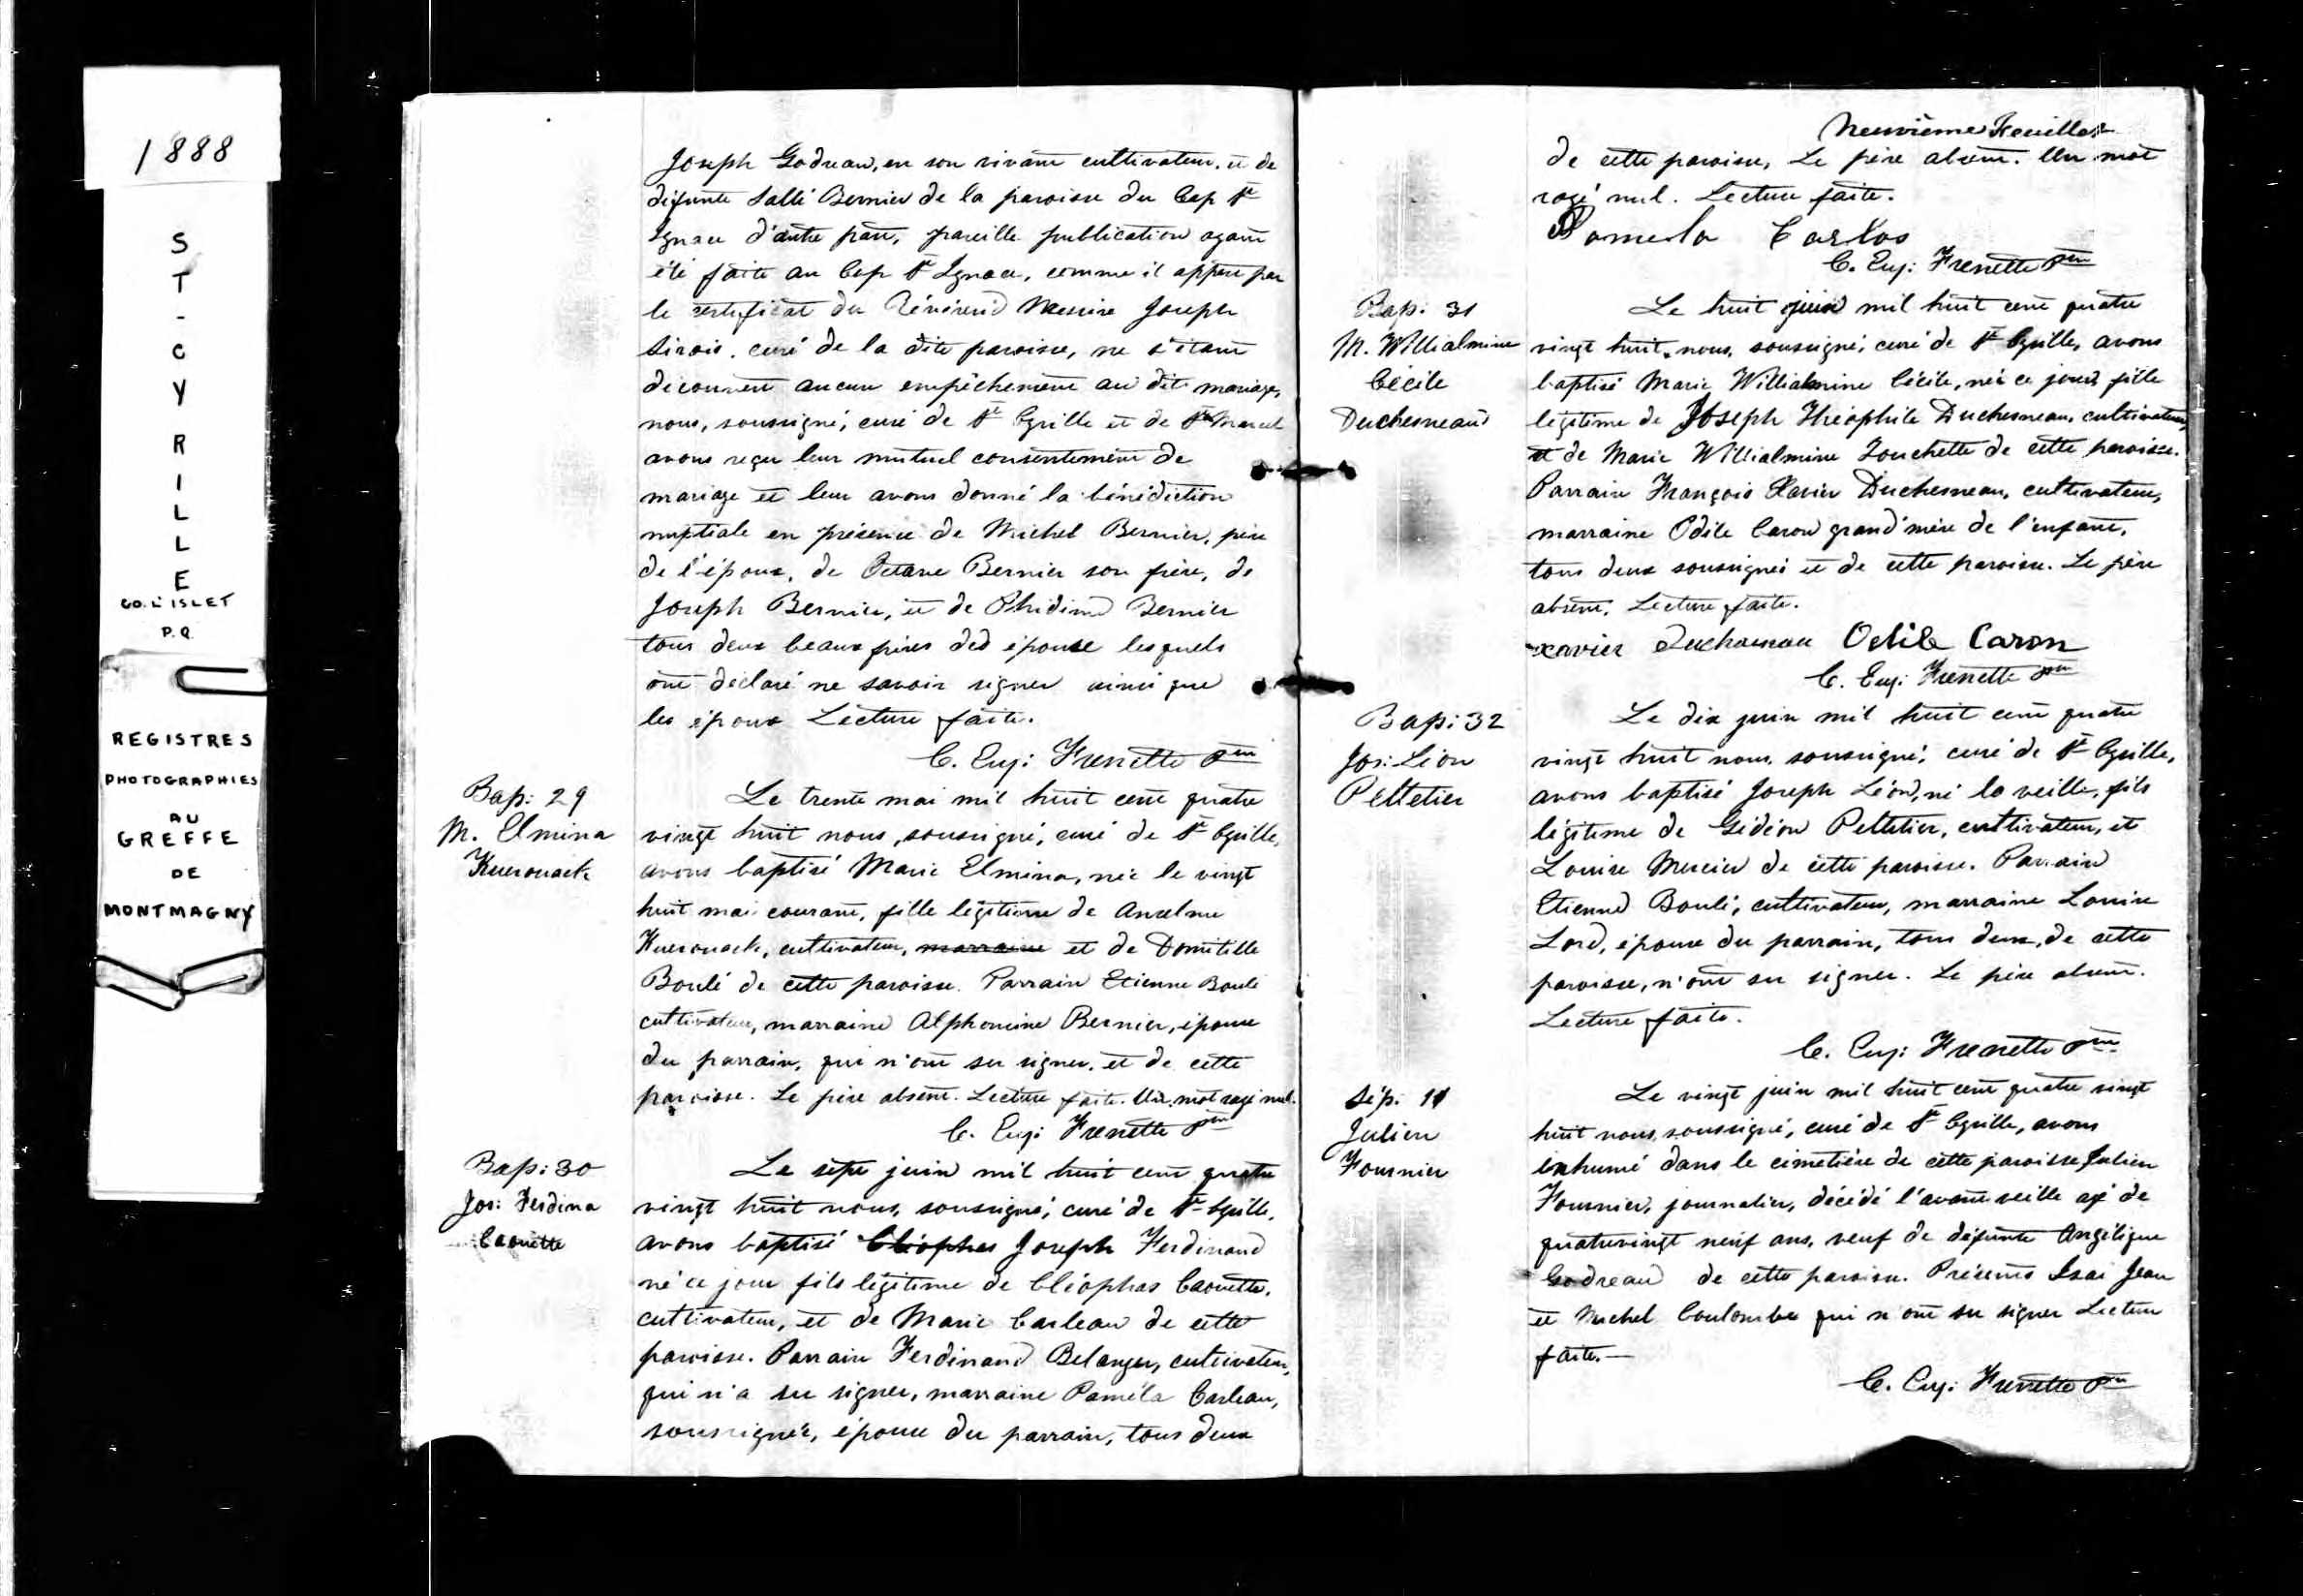 1888
ST-CYRILLE
CO. L'ISLET
P.Q.
REGISTRES
PHOTOGRAPHIES
AU
GREFFE
DE
MONTMAGNY
Joseph Godreau, en son vivant cultivateur, et de
défunte Sallé Bernier de la paroisse du Cap St
Ignace d'autre part, pareille publication ayant
été faite au Cap St Ignace, comme il appert par
le certificat du Révérend Messire Joseph
Sirois, curé de la dite paroisse, ne s'étant
découvert aucun empêchement au dit mariage,
nous, soussigné, curé de St Cyrille et de St Marcel
avons reçu leur mutuel consentement de
mariage et leur avons donné la bénédiction
nuptiale en présence de Michel Bernier, père
de l'époux, de Octave Bernier son frère, de
Joseph Bernier, et de Phidime Bernier
tous deux beaux frères de épouse lesquels
ont déclaré ne savoir signer ainsi que
les époux Lecture faite.
C. Eug: Frenette Ptre
Bap: 29
M. Elmina
Kuerouack
Le trente mai mil huit cent quatre
vingt huit nous, soussigné, curé de St Cyrille,
avons baptisé Marie Elmina, née le vingt
huit mai courant, fille légitime de Anselme
Kuerouack, cultivateur, marraine et de Domitille
Boulé de cette paroisse. Parrain Etienne Boulé
cultivateur, marraine Alphonsine Bernier, épouse
du parrain, qui n'ont su signer, et de cette
paroisse. Le père absent. Lecture faite. Un mot rayé nul.
C. Eug: Frenette Ptre
Bap: 30
Jos: Ferdina
Caouette
Le sept juin mil huit cent quatre
vingt huit nous, soussigné, curé de St Cyrille,
avons baptisé Cléophas Joseph Ferdinand
né ce jour fils légitime de Cléophas Caouette,
cultivateur, et de Marie Carleau de cette
paroisse. Parrain Ferdinand Belanger, cultivateur,
qui n'a su signer, marraine Paméla Carleau,
soussignée, épouse du parrain, tous deux
Neuvième Feuillet
de cette paroisse, Le père absent. Un mot
rayé nul. Lecture faite.
Pamela Carlos
C. Eug: Frenette Ptre
Bap: 31
M. Willialmine
Cécile
Duchesneau
Le huit juin mil huit cent quatre
vingt huit, nous, soussigné, curé de St Cyrille, avons
baptisé Marie Willialmine Cécile, née ce jour, fille
légitime de Joseph Théophile Duchesneau, cultivateur,
et de Marie Willialmine Touchette de cette paroisse.
Parrain François Xavier Duchesneau, cultivateur,
marraine Odile Caron grand'mère de l'enfant,
tous deux soussignés et de cette paroisse. Le père
absent. Lecture faite.
xavier Duchaneau Odile Caron
C. Eug: Frenette Ptre
Bap: 32
Jos: Léon
Pelletier
Le dix juin mil huit cent quatre
vingt huit nous, soussigné, curé de St Cyrille,
avons baptisé Joseph Léon, né la veille, fils
légitime de Gédéon Pelletier, cultivateur, et
Louise Mercier de cette paroisse. Parrain
Etienne Boulé, cultivateur, marraine Louise
Lord, épouse du parrain, tous deux, de cette
paroisse, n'ont su signer. Le père absent.
Lecture faite.
C. Eug: Frenette Ptre
Sép. 11
Julien
Fournier
Le vingt juin mil huit cent quatre vingt
huit nous, soussigné, curé de St Cyrille, avons
inhumé dans le cimetière de cette paroisse Julien
Fournier, journalier, décédé l'avant veille agé de
quatrevingt neuf ans, veuf de défunte Angélique
Godreau de cette paroisse. Présents Isai Jean
et Michel Coulombe qui n'ont su signer Lecture
faite.—
C. Eug: Frenette Ptre